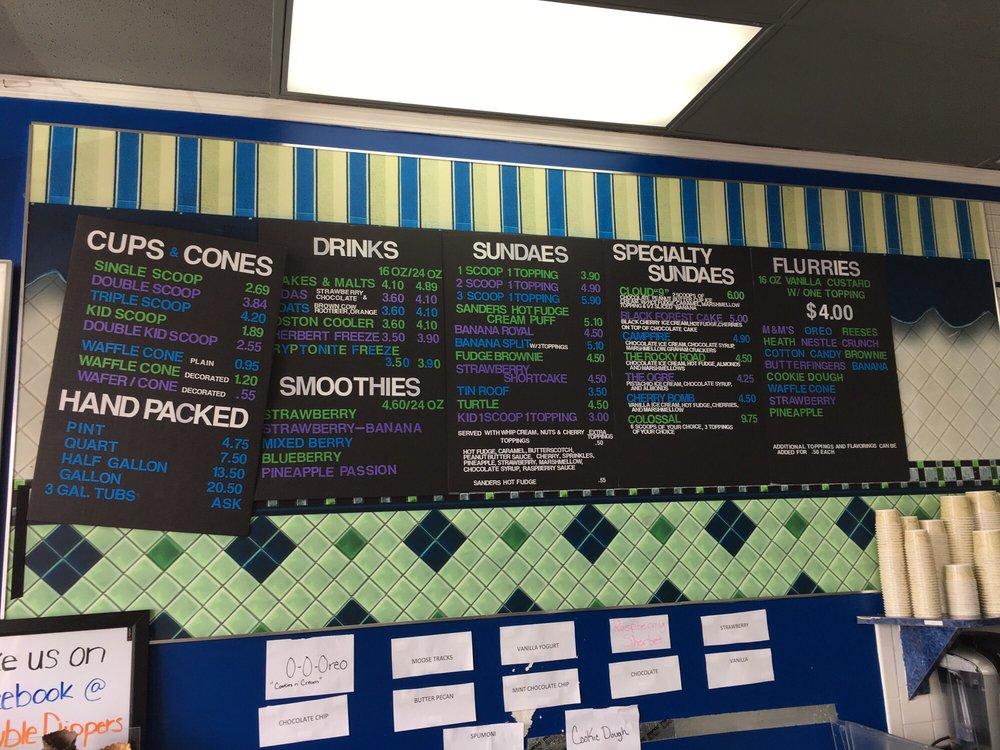 CUPS & CONES
SINGLE SCOOP 2.69
DOUBLE SCOOP 3.84
TRIPLE SCOOP 4.20
KID SCOOP 1.89
DOUBLE KID SCOOP 2.55
WAFFLE CONE PLAIN 0.95
WAFFLE CONE DECORATED 1.20
WAFER / CONE DECORATED .55
HAND PACKED
PINT 4.75
QUART 7.50
HALF GALLON 13.50
GALLON 20.50
3 GAL. TUBS ASK
DRINKS
16 OZ/24 OZ
AKES & MALTS 4.10 4.89
DAS STRAWBERRY CHOCOLATE & 3.60 4.10
OATS BROWN COW ROOTBEER, ORANGE 3.60 4.10
OSTON COOLER 3.60 4.10
HERBERT FREEZE 3.50 3.90
RYPTONITE FREEZE
3.50 3.90
SMOOTHIES
4.60/24 OZ
STRAWBERRY
STRAWBERRY-BANANA
MIXED BERRY
BLUEBERRY
PINEAPPLE PASSION
SUNDAES
1 SCOOP 1 TOPPING 3.90
2 SCOOP 1 TOPPING 4.90
3 SCOOP 1 TOPPING 5.90
SANDERS HOT FUDGE
CREAM PUFF 5.10
BANANA ROYAL 4.50
BANANA SPLIT W/3 TOPPINGS 5.10
FUDGE BROWNIE 4.50
STRAWBERRY
SHORTCAKE 4.50
TIN ROOF 3.50
TURTLE 4.50
KID 1 SCOOP 1 TOPPING 3.00
SERVED WITH WHIP CREAM, NUTS & CHERRY EXTRA
TOPPINGS TOPPINGS .50
HOT FUDGE, CARAMEL, BUTTERSCOTCH,
PEANUTBUTTER SAUCE, CHERRY, SPRINKLES,
PINEAPPLE, STRAWBERRY, MARSHMELLOW,
CHOCOLATE SYRUP, RASPBERRY SAUCE
SANDERS HOT FUDGE .55
SPECIALTY
SUNDAES
CLOUD "9" 6.00
TOPPING
BLACK FOREST CAKE 5.00
BLACK CHERRY ICE CREAM, HOT FUDGE, CHERRIES
ON TOP OF CHOCOLATE CAKE
CAMPFIRE 4.90
CHOCOLATE ICE CREAM, CHOCOLATE SYRUP
MARSHMELLOW, GRAHAM CRACKERS
THE ROCKY ROAD 4.50
CHOCOLATE ICE CREAM, HOT FUDGE, ALMONDS
AND MARSHMELLOWS
THE OGRE 4.25
PISTACHIO ICE CREAM, CHOCOLATE SYRUP,
AND ALMONDS
CHERRY BOMB 4.50
VANILLA ICE CREAM, HOT FUDGE, CHERRIES,
AND MARSHMELLOW
COLOSSAL 9.75
6 SCOOPS OF YOUR CHOICE, 3 TOPPINGS
OF YOUR CHOICE
FLURRIES
16 OZ VANILLA CUSTARD
W/ ONE TOPPING
$4.00
M&M'S OREO REESES
HEATH NESTLE CRUNCH
COTTON CANDY BROWNIE
BUTTERFINGERS BANANA
COOKIE DOUGH
WAFFLE CONE
STRAWBERRY
PINEAPPLE
ADDITIONAL TOPPINGS AND FLAVORINGS CAN BE
ADDED FOR .50 EACH
e us on
cebook @
uble Dippers
O-O-Oreo
"Cookies n' Cream"
MOOSE TRACKS
VANILLA YOGURT
Sherbet
STRAWBERRY
CHOCOLATE CHIP
BUTTER PECAN
MINT CHOCOLATE CHIP
CHOCOLATE
VANILLA
SPUMONI
Cookie Dough